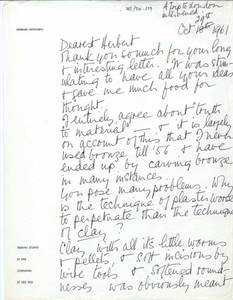 A trip to London
intervened
29th
Oct 1961
Dearest Herbert
Thank you so much for your long
& interesting letter. It was stim-
ulating to have all your ideas
& gave me much food for
thought.
I entirely agree about "truth
to material" & it is largely
on account of this that I never
used bronze till '56 & have
ended up by carving bronze
in many instances.
You pose many problems. Why
is the technique of plaster worse
to perpetuate than the technique
of clay?
Clay with all its little worms
& pellets, & soft incisions by
wire tools & softened round-
nesses was obviously meant